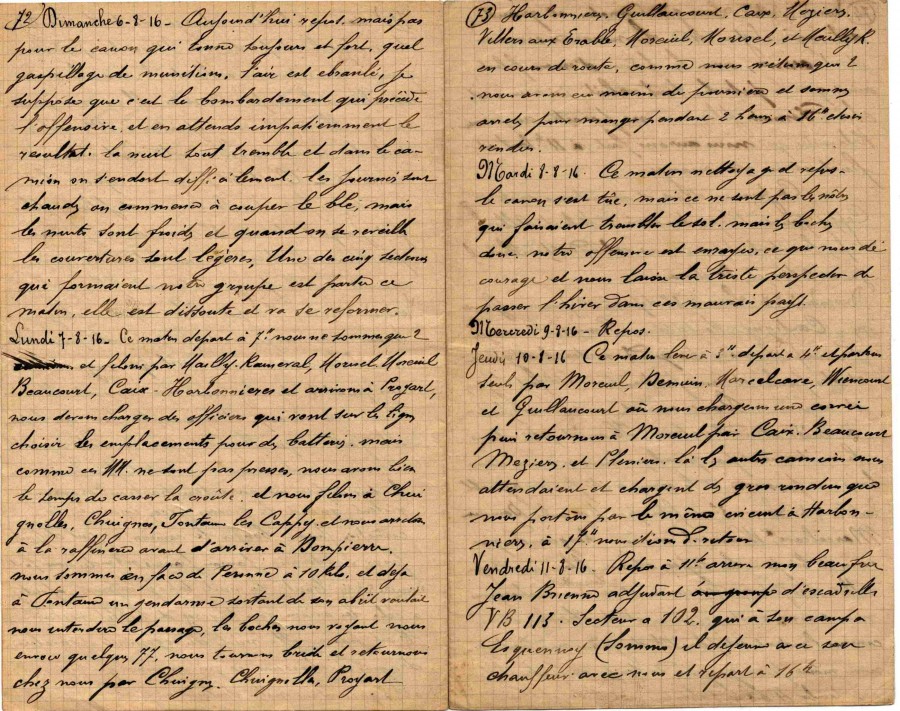 72 Dimanche 6-8-16 - Aujourd'hui repos, mais pas
pour le canon qui tonne toujours et fort, quel
gaspillage de munitions, l'air est ebranlé, je
suppose que c'est le bombardement qui précède
l'offensive, et en attends impatiemment le
resultat. la nuit tout tremble et dans le ca-
mion on s'endort difficilement. les journees sont
chaudes on commence à couper le blé, mais
les nuits sont froides et quand on se reveille
les couvertures sont légères, Une des cinq sections
qui formaient notre groupe est partie ce
matin, elle est dissoute et va se reformer.
Lundi 7-8-16 - Ce matin depart à 7h nous ne sommes que 2
et filons par Mailly-Raineval, Moreuil,
Beaucourt, Caix - Harbonnieres et arrivons à Proyart,
nous devons charger des officiers qui vont sur la ligne
choisir les emplacements pour des batteries. mais
comme ces MM. ne sont pas pressés, nous avons bien
le temps de casser la croûte. et nous filons à Chui
gnolles, Chuignes, Fontaine les Cappy et nous arretons
à la raffinerie avant d'arriver à Dompierre.
nous sommes en face de Peronne à 10 kil. et deja
à Fontaine un gendarme sortant de son abri voulait
nous interdire le passage, les boches nous voyant nous
envoie quelques 77, nous tournons bride et retournons
chez nous par Chuignes, Chuignolles, Proyart
73 Harbonnieres, Guillaucourt, Caix, Meziers,
Villers aux Erable, Moreuil, Morisel, et Mailly R.
en cours de route, comme nous n'étions que 2
nous avons eu moins de poussiere et sommes
arretés pour manger pendant 2 heures à 16h etions
rendus.
Mardi 8-8-16. Ce matin nettoyage et repos -
le canon s'est tue, mais ce ne sont pas les nôtres
qui faisaient trembler le sol. mais les boches
donc, notre offensive est enrayée, ce que nous dé
courage et nous laisse la triste perspective de
passer l'hiver dans ces mauvais pays.
Mercredi 9-8-16 - Repos.
Jeudi 10-8-16 Ce matin levé à 3h depart à 4h et partons
seuls par Moreuil, Demuin, Marcelcave, Wiencourt
et Guillaucourt où nous chargeons une corvée
puis retournons à Moreuil par Caix. Beaucourt
Meziers. et Plessiers. là les autres camions nous
attendaient et chargent des gros rondins que
nous portons par le même circuit à Harbon-
niers, à 17h nous étions de retour
Vendredi 11-8-16. Repos à 11h arrive mon beau frere
Jean Brienne adjudant d'escadrille
VB 113. Secteur a 102, qui à son camp a
Esquennoy (Somme) il dejeune avec son
chauffeur avec nous et repart à 16h